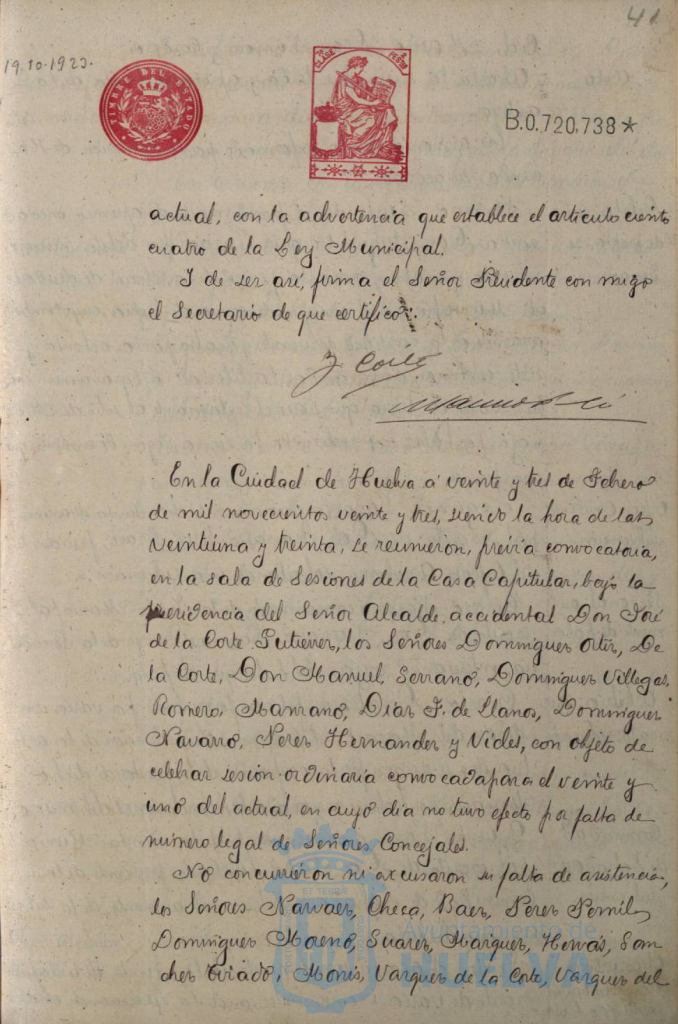 41
19.10-1923.
TIMBRE DEL ESTADO
CLASE
B.0.720,738*
actual, con la advertencia que establece el artículo ciento
cuatro de la Ley Municipal.
I de ser así, firma el Señor Presidente con migo
el Secretario de que certifico.
J Corte
En la Ciudad de Huelva á veinte y tres de Febrero
de mil novecientos veinte y tres, siendo la hora de las
veintiuna y treinta, se reunieron, previa convocatoria,
en la sala de Sesiones de la Casa Capitular, bajo la
presidencia del Señor Alcalde accidental Don José
de la Corte Gutiérrez, los Señores Dominguez Ortiz, De
la Corte, Don Manuel, Serrano, Dominguez Villegas,
Romero, Manzano, Diaz F. de Llanos, Dominguez
Navarro, Perez Hernandez y Vides, con objeto de
celebrar sesión ordinaria convocada para el veinte y
uno del actual, en cuyo dia no tuvo efecto por falta de
número legal de Señores Concejales.
No concurrieron ni excusaron su falta de asistencia,
los Señores Narvaez, Checa, Baez, Perez Pernil,
Dominguez Moreno, Suarez, Marquez, Hervás, San
chez Tirado, Monis, Vazquez de la Corte, Vazquez del
Ayuntamiento de
HUELVA